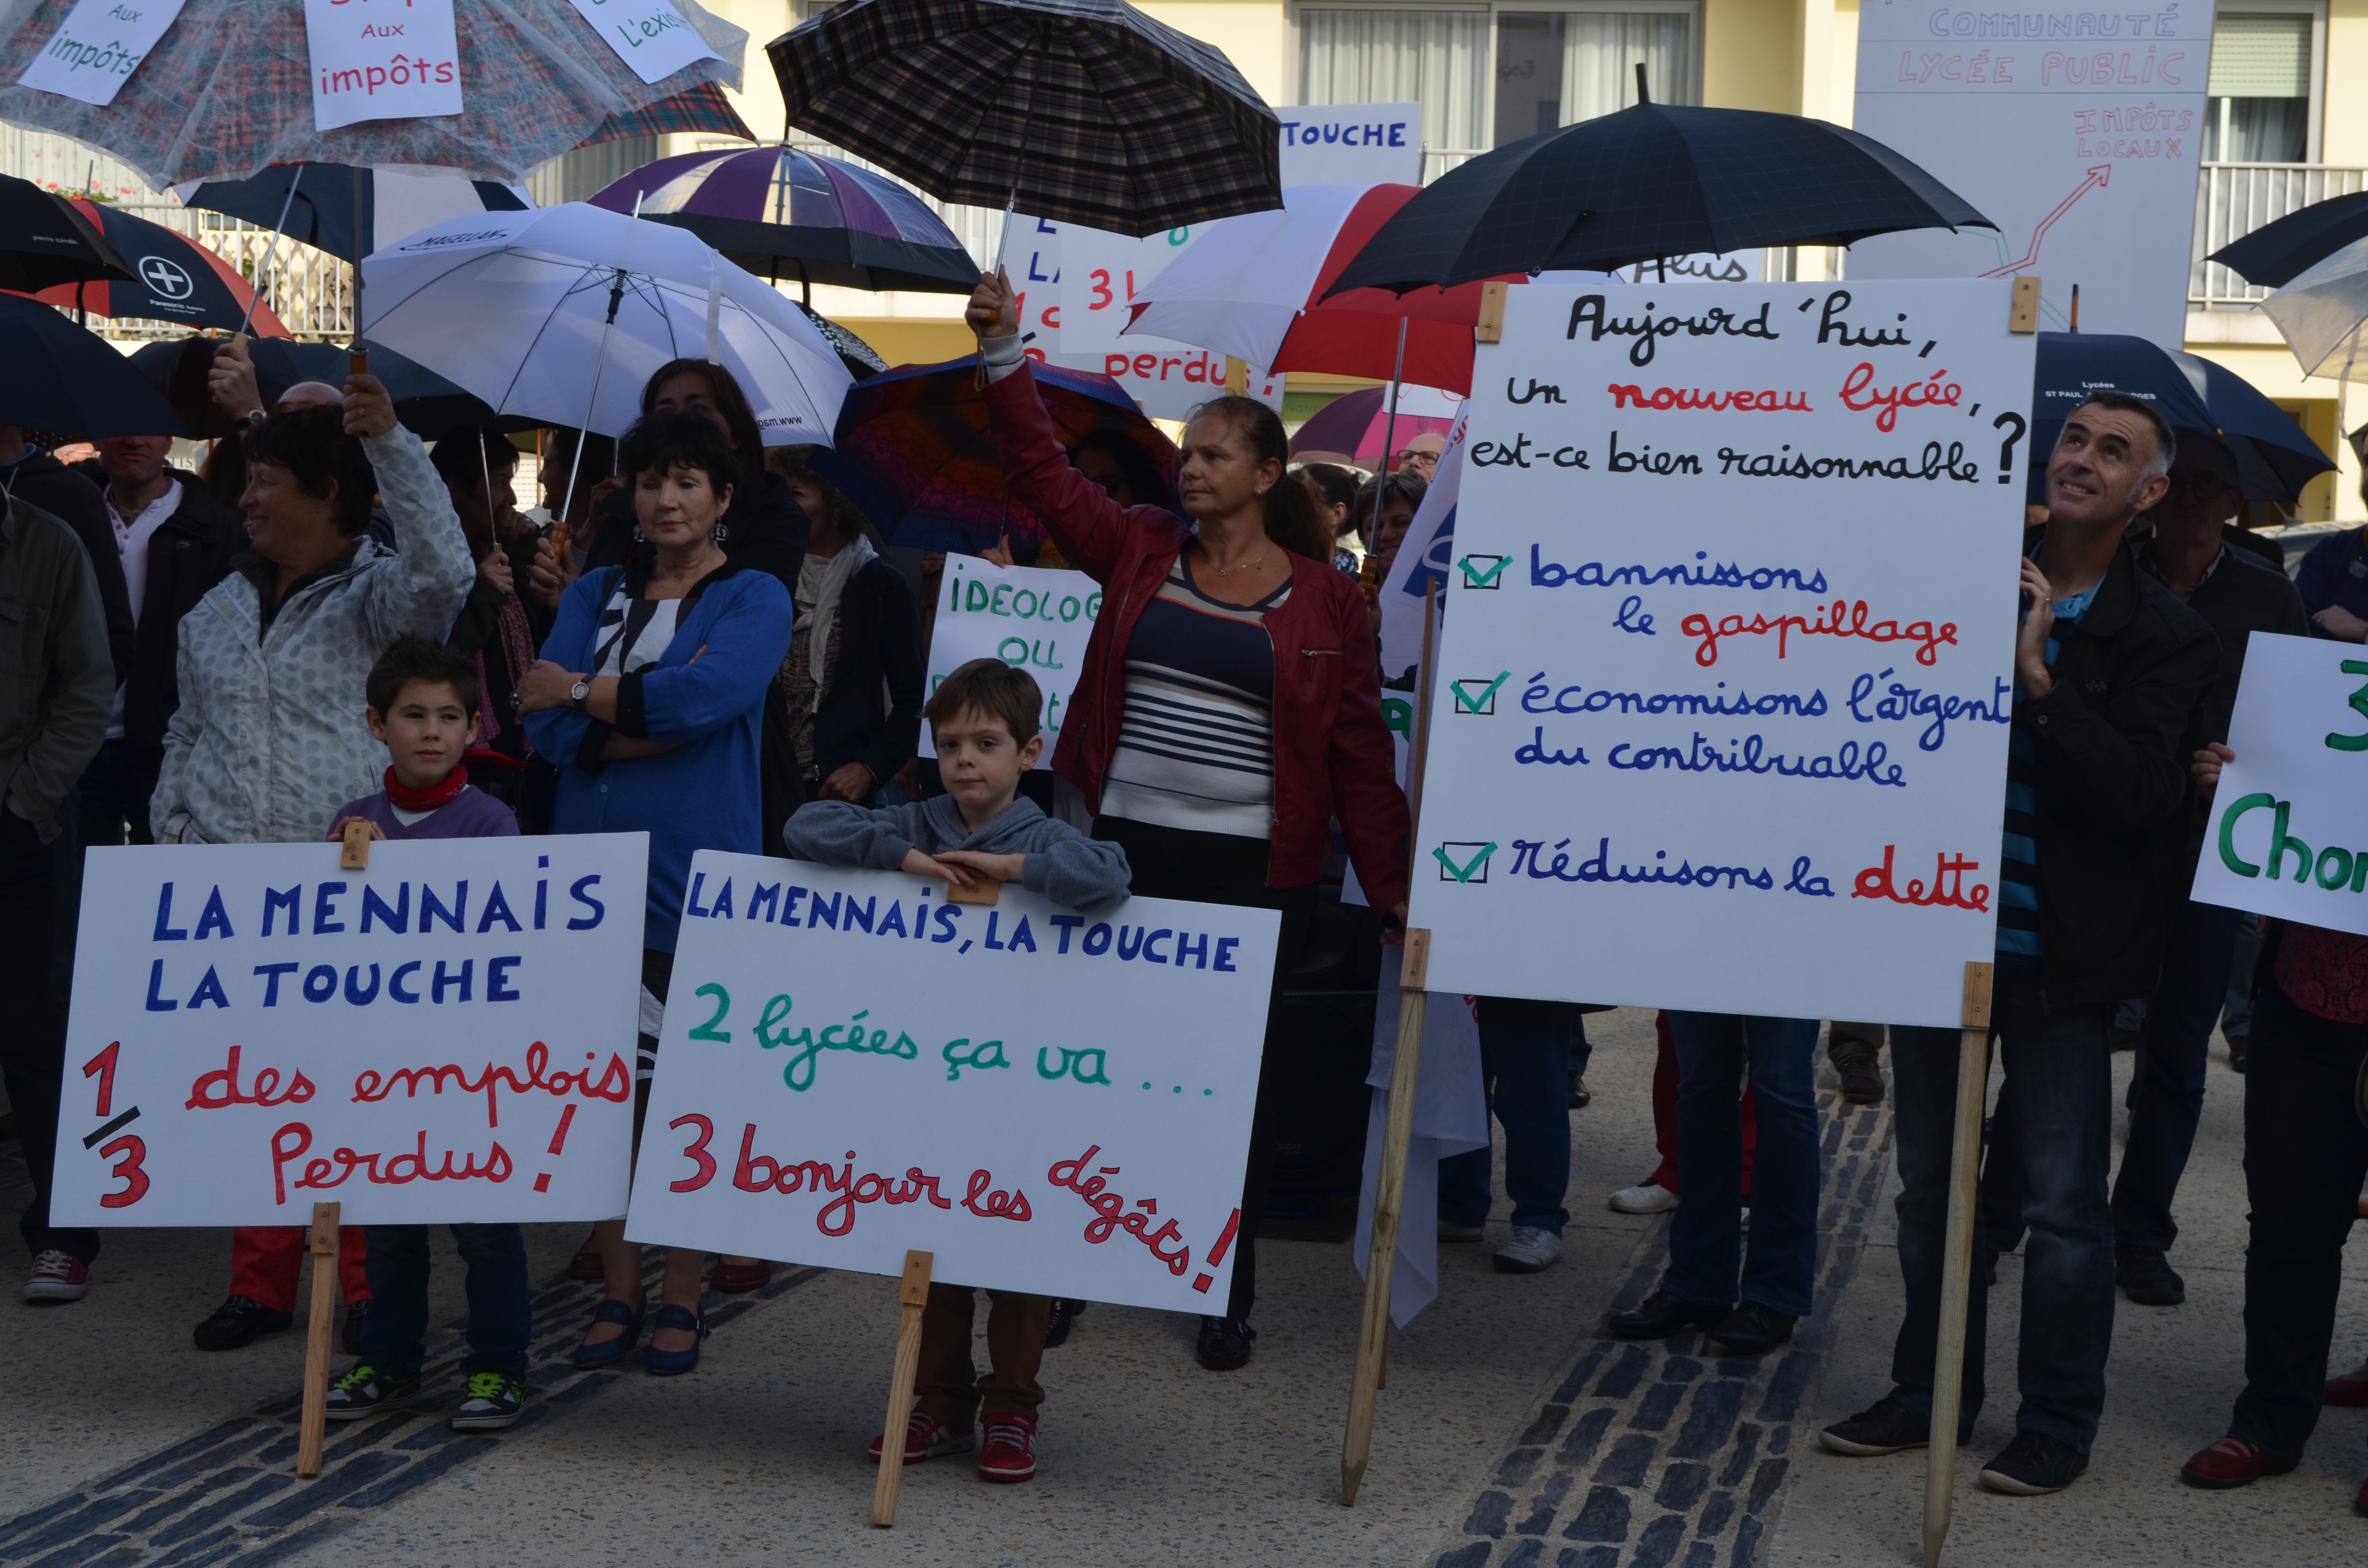 Aux
impôts
Aux
impôts
L'exis
COMMUNAUTÉ
LYCÉE PUBLIC
IMPÔTS
LOCAUX
TOUCHE
pierre cardin
Panasonic
MAGELLAN
www
LA
3
perdus !
Plus
Lycées
ST PAUL
IDEOLOG
OU
Aujourd'hui,
un nouveau lycée,
est-ce bien raisonnable ?
bannissons
le gaspillage
économisons l'argent
du contribuable
réduisons la dette
3
Chon
LA MENNAIS
LA TOUCHE
1/3 des emplois
Perdus !
LA MENNAIS, LA TOUCHE
2 lycées ça va ...
3 bonjour les dégâts !